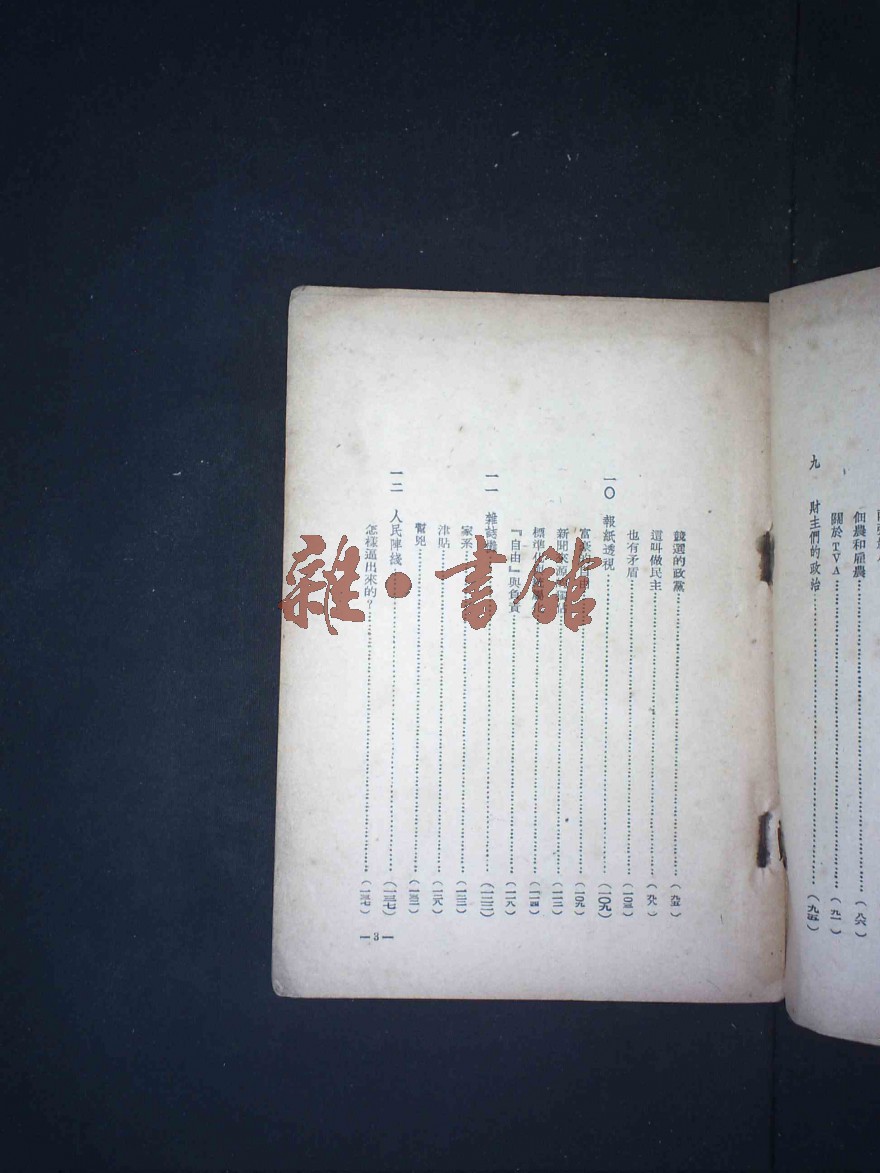 佃農和雇農……(八六)
關於TVA……(九一)
九 財主們的政治……(九五)
競選的政黨……(九五)
這叫做民主……(九八)
也有矛盾……(一〇三)
一〇 報紙透視……(一〇九)
富……(一〇九)
新聞來源……(一一二)
標準化……(一一四)
『自由』與負責……(一一八)
一一 雜誌……(一二二)
家系……(一二二)
津貼……(一二八)
幫兇……(一三一)
一二 人民陣綫……(一三七)
怎樣逼出來的?……(一三七)
—3—
雜·書館